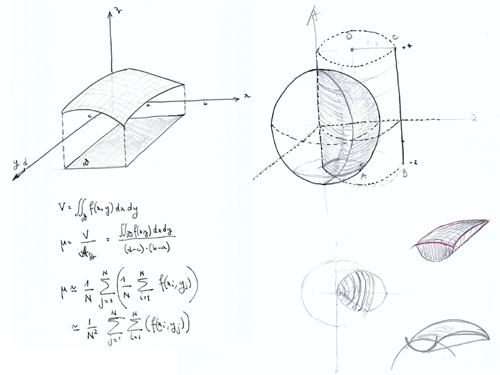 z
x
a
b
c
y
d
D
C
B
A
V = ∬_D f(x,y) dx dy
μ = V/A_D = ∬_D f(x,y) dx dy / (d-c)·(b-a)
μ ≃ 1/N ∑_{j=1}^{N} ( 1/N ∑_{i=1}^{N} f(x_i, y_j) )
≃ 1/N² ∑_{j=1}^{N} ∑_{i=1}^{N} (f(x_i, y_j))